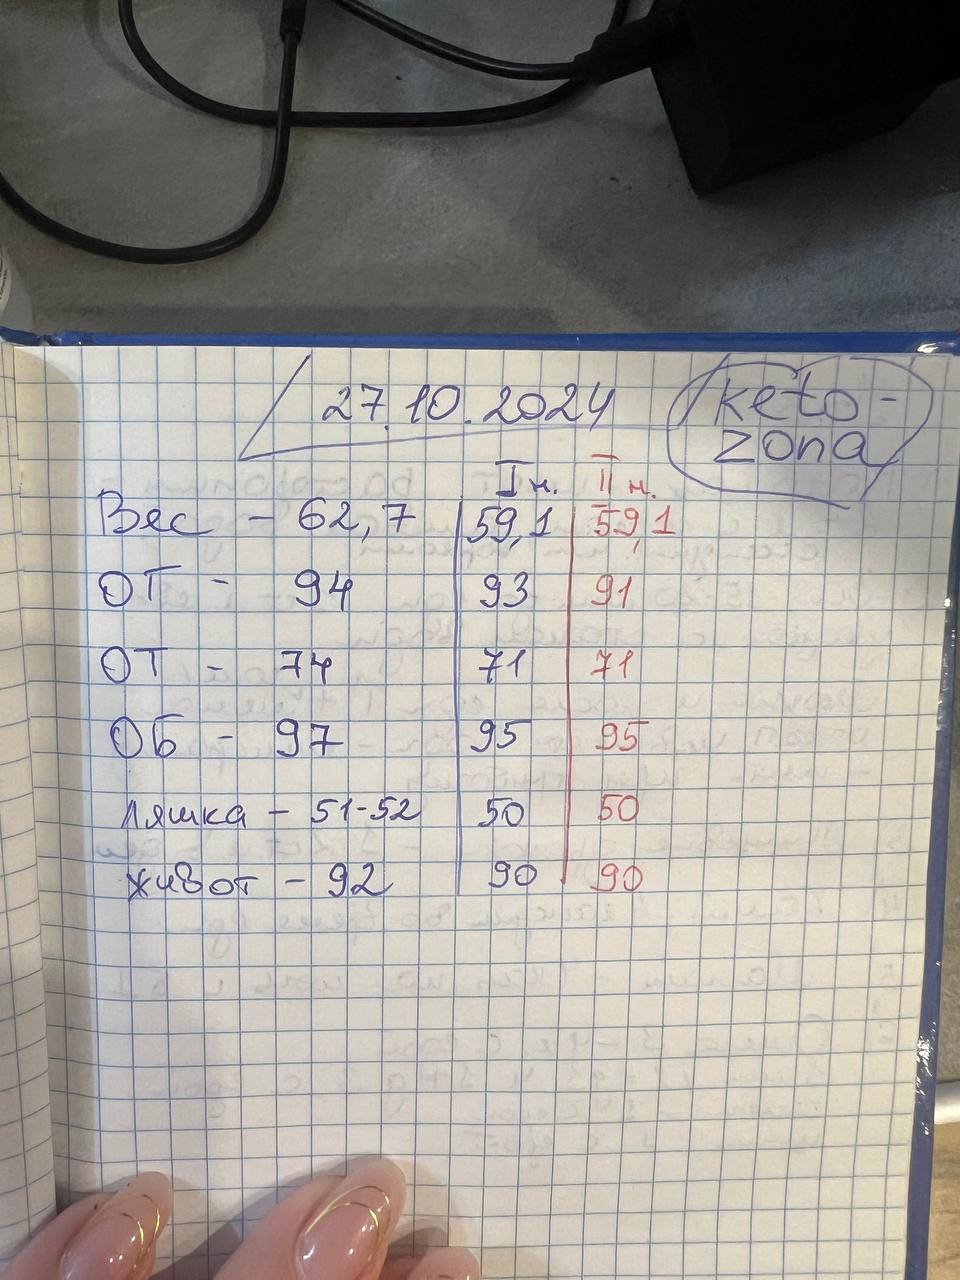 27.10.2024
keto-
zona
I н. II н.
Вес - 62,7 59,1 59,1
ОГ - 94 93 91
ОТ - 74 71 71
ОБ - 97 95 95
Ляшка - 51-52 50 50
живот - 92 90 90